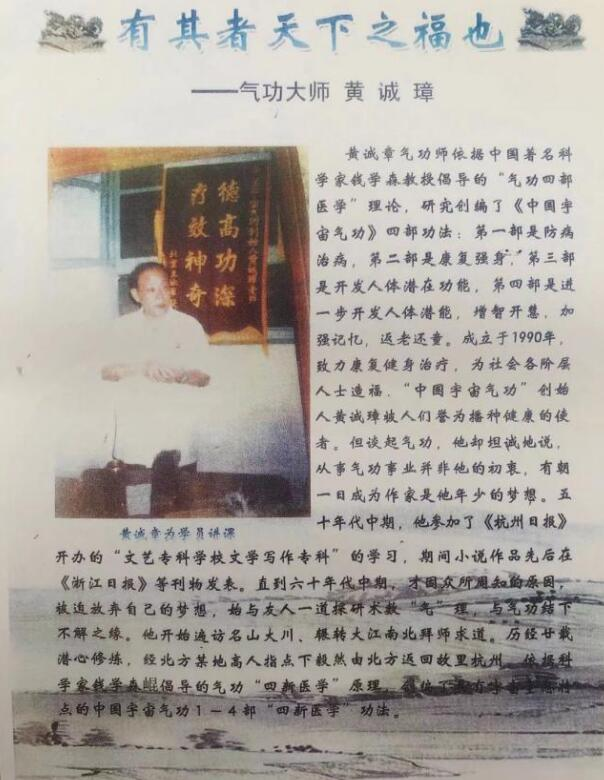 有其者天下之福也
——气功大师 黄诚璋
德高功深
疗效神奇
黄诚章气功师依据中国著名科
学家钱学森教授倡导的“气功四部
医学”理论，研究创编了《中国宇
宙气功》四部功法：第一部是防病
治病，第二部是康复强身，第三部
是开发人体潜在功能，第四部是进
一步开发人体潜能，增智开慧，加
强记忆，返老还童。成立于1990年，
致力康复健身治疗，为社会各阶层
人士造福．“中国宇宙气功”创始
人黄诚璋被人们誉为播种健康的使
者。但谈起气功，他却坦诚地说，
从事气功事业并非他的初衷，有朝
一日成为作家是他年少的梦想。五
十年代中期，他参加了《杭州日报》
黄诚章为学员讲课
开办的“文艺专科学校文学写作专科”的学习，期间小说作品先后在
《浙江日报》等刊物发表。直到六十年代中期，才因众所周知的原因，
被迫放弃自己的梦想，始与友人一道探研术数“气”理，与气功结下
不解之缘。他开始遍访名山大川、辗转大江南北拜师求道。历经廿载
潜心修炼，经北方某地高人指点下毅然由北方返回故里杭州，依据科
学家钱学森倡导的气功“四新医学”原理，
点的中国宇宙气功1－4部“四新医学”功法。